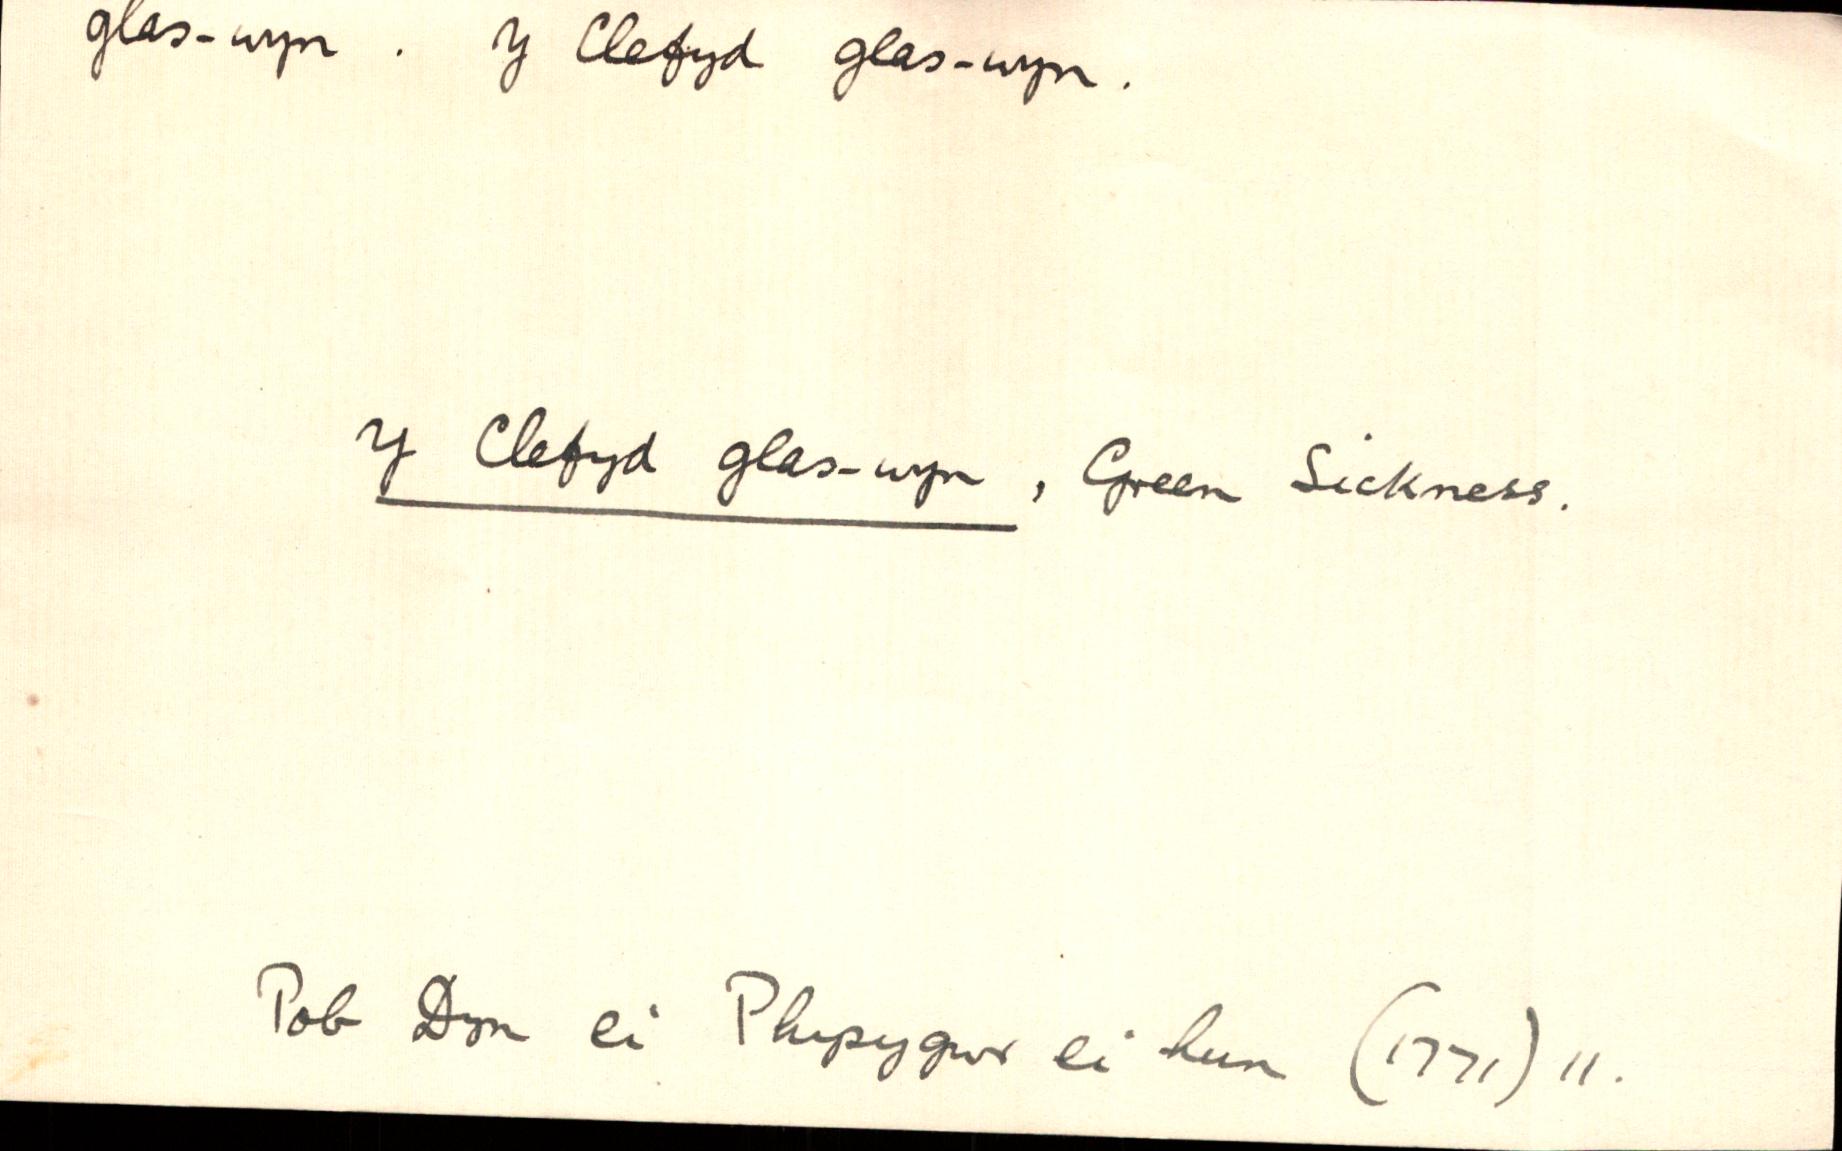 glas-wyn. Y Clefyd glas-wyn.
Y Clefyd glas-wyn, Green Sickness.
Pob Dyn ei Physygwr ei hun (1771) 11.